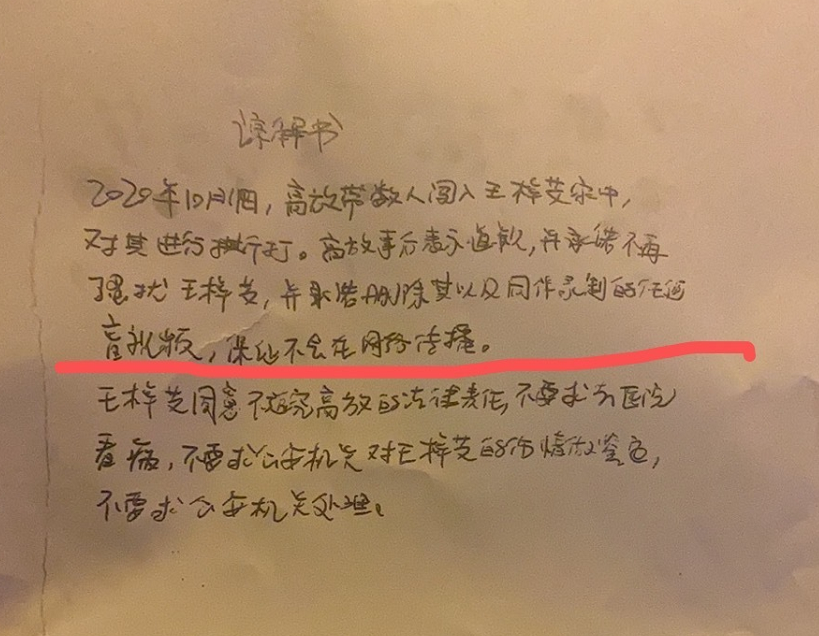 谅解书
2020年10月1日，高放带数人闯入王梓芠家中，
对其进行撕打。高放事后表示道歉，并承诺不再
骚扰王梓芠，并承诺删除其以及同伴录制的任何
音视频，保证不会在网络传播。
王梓芠同意不追究高放的法律责任，不要求去医院
看病，不要求公安机关对王梓芠的伤情做鉴定，
不要求公安机关处理。